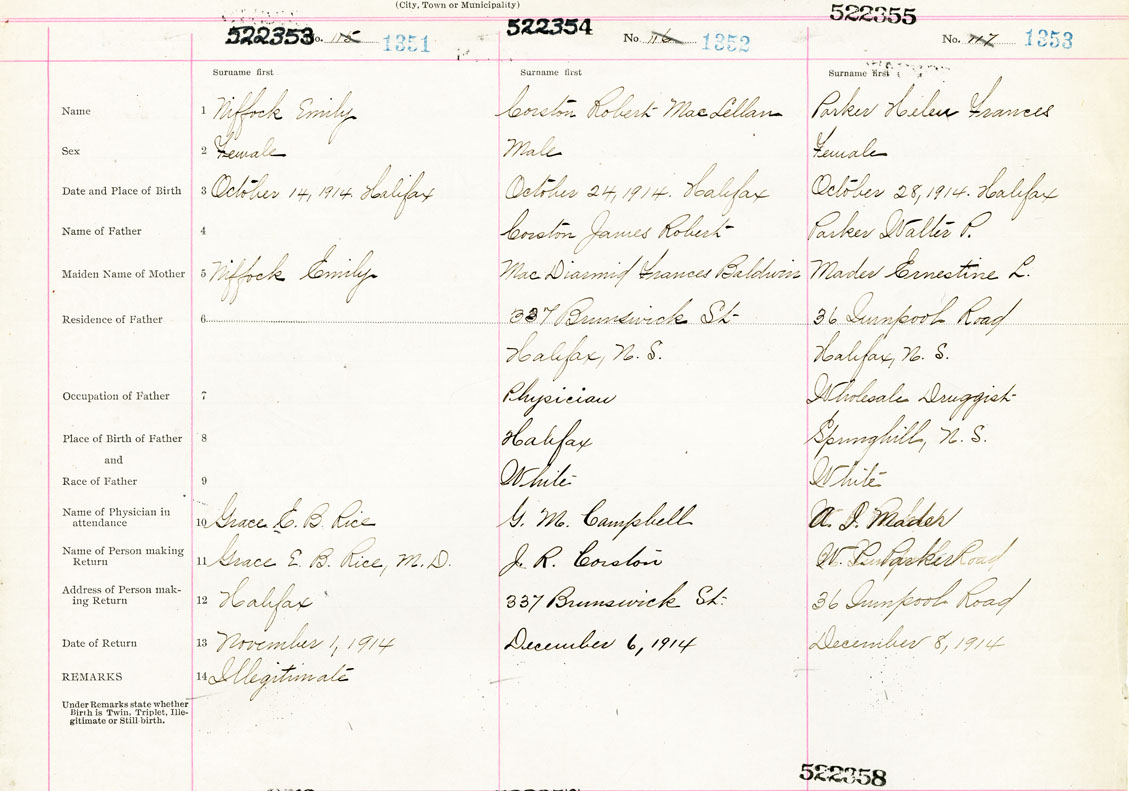 (City, Town or Municipality)
522353 No. 115 1351
522354 No. 116 1352
522355 No. 117 1353
Surname first Surname first Surname first
Name 1 Niffock Emily Corston Robert MacLellan Parker Helen Frances
Sex 2 Female Male Female
Date and Place of Birth 3 October 14, 1914. Halifax October 24, 1914. Halifax October 28, 1914. Halifax
Name of Father 4 Corston James Robert Parker Walter P.
Maiden Name of Mother 5 Niffock Emily Mac Diarmid Frances Baldwin Mader Ernestine L.
Residence of Father 6 337 Brunswick St. 36 Road
Halifax, N. S. Halifax, N. S.
Occupation of Father 7 Physician Wholesale Druggist
Place of Birth of Father 8 Halifax Springhill, N. S.
and
Race of Father 9 White White
Name of Physician in
attendance 10 Grace E. B. Rice G. M. Campbell A. I. Mader
Name of Person making
Return 11 Grace E. B. Rice, M. D. J. R. Corston W. Parker
Address of Person mak-
ing Return 12 Halifax 337 Brunswick St. 36 Road
Date of Return 13 November 1, 1914 December 6, 1914 December 8, 1914
REMARKS 14 Illegitimate
Under Remarks state whether
Birth is Twin, Triplet, Ille-
gitimate or Still-birth.
522358